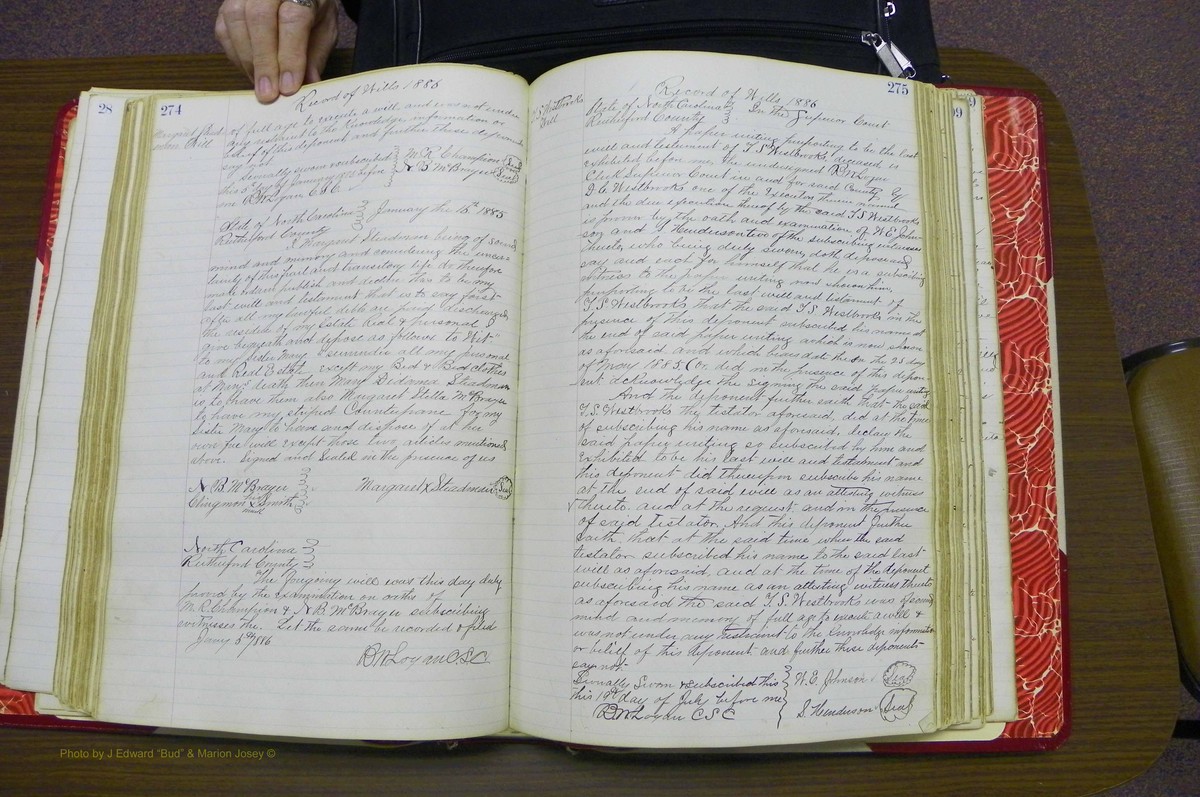 28
274
Record of Wills 1886
Margaret Stead
man Will
of full age to execute a will, and was not under
any restraint to the knowledge information or
belief of this deponent and further these deponents
say not
Severally sworn & subscribed
this day of January 1885 before
me R W Logan C S C
M. R. Champion Seal
N. B. McBrayer Seal
State of North Carolina
Rutherford County
January the 15th 1885
I Margaret Steadman being of sound
mind and memory and considering the uncer-
tainty of this frail and transitory life do therefore
make ordain publish and declare this to be my
last will and testament that is to say first
after all my lawful debts are paid & discharged
the residue of my Estate Real & personal I
give bequeath and dispose as follows To Wit-
to my sister Mary Steadman all my personal
and Real Estate except my Bed & Bed clothes
at Marys death then Mary Steadman
is to have them also Margaret Stella McBrayer
to have my striped Counterpane for my
sister Mary to have and dispose of at her
own free will except those two articles mentioned
above. Signed and Sealed in the presence of us
N. B. McBrayer
Clingmon X Smith
his
mark
Margaret X Steadman Seal
North Carolina
Rutherford County
The forgoing will was this day duly
proved by the examination on oaths of
M R Champion & N. B. McBrayer subscribing
witnesses the. Let the same be recorded & filed
Jany 5th 1886
R W Logan C S C
275
T S Westbrooks
Will
Record of Wills 1886
State of North Carolina
Rutherford County
In the Superior Court
A paper writing purporting to be the last
will and testament of T. S Westbrooks, deceased is
exhibited before me, the undersigned R W Logan
Clerk Superior Court in and for said County by
Westbrooks one of the Executors therein named
and the due execution thereof by the said T. S Westbrooks
is proven by the oath and examination of W E John-
son and S Henderson two of the subscribing witnesses
thereto, who being duly sworn, doth depose and
say and each for himself that he is a subscribing
witness to the paper writing now shown him,
purporting to be the last will and testament of
T. S. Westbrooks that the said T. S. Westbrooks in the
presence of this deponent subscribed his name at
the end of said paper writing which is now shown
as aforesaid and which bears date the 25 day
of May 1885 (Or, did in the presence of this depon
ent acknowledge the signing the said paper writing
And the deponent further saith that the said
T. S. Westbrooks the testator aforesaid, did at the time
of subscribing his name as aforesaid, declare the
said paper writing so subscribed by him and
exhibited to be his last will and testament and
this deponent did thereupon subscribe his name
at the end of said will as an attesting witness
thereto. and at the request and in the presence
of said testator. And this deponent further
saith, that at the said time when the said
testator subscribed his name to the said last
will as aforesaid, and at the time of the deponent
subscribing his name as an attesting witness thereto
as aforesaid the said T. S. Westbrooks was of sound
mind and memory of full age to execute a will &
was not under any restraint to the knowledge information
or belief of this deponent and further these deponents
say not
Severally Sworn & Subscribed this
this 19th day of July before me
R W Logan C S C
W. E. Johnson Seal
S. Henderson Seal
Photo by J Edward "Bud" & Marion Josey ©